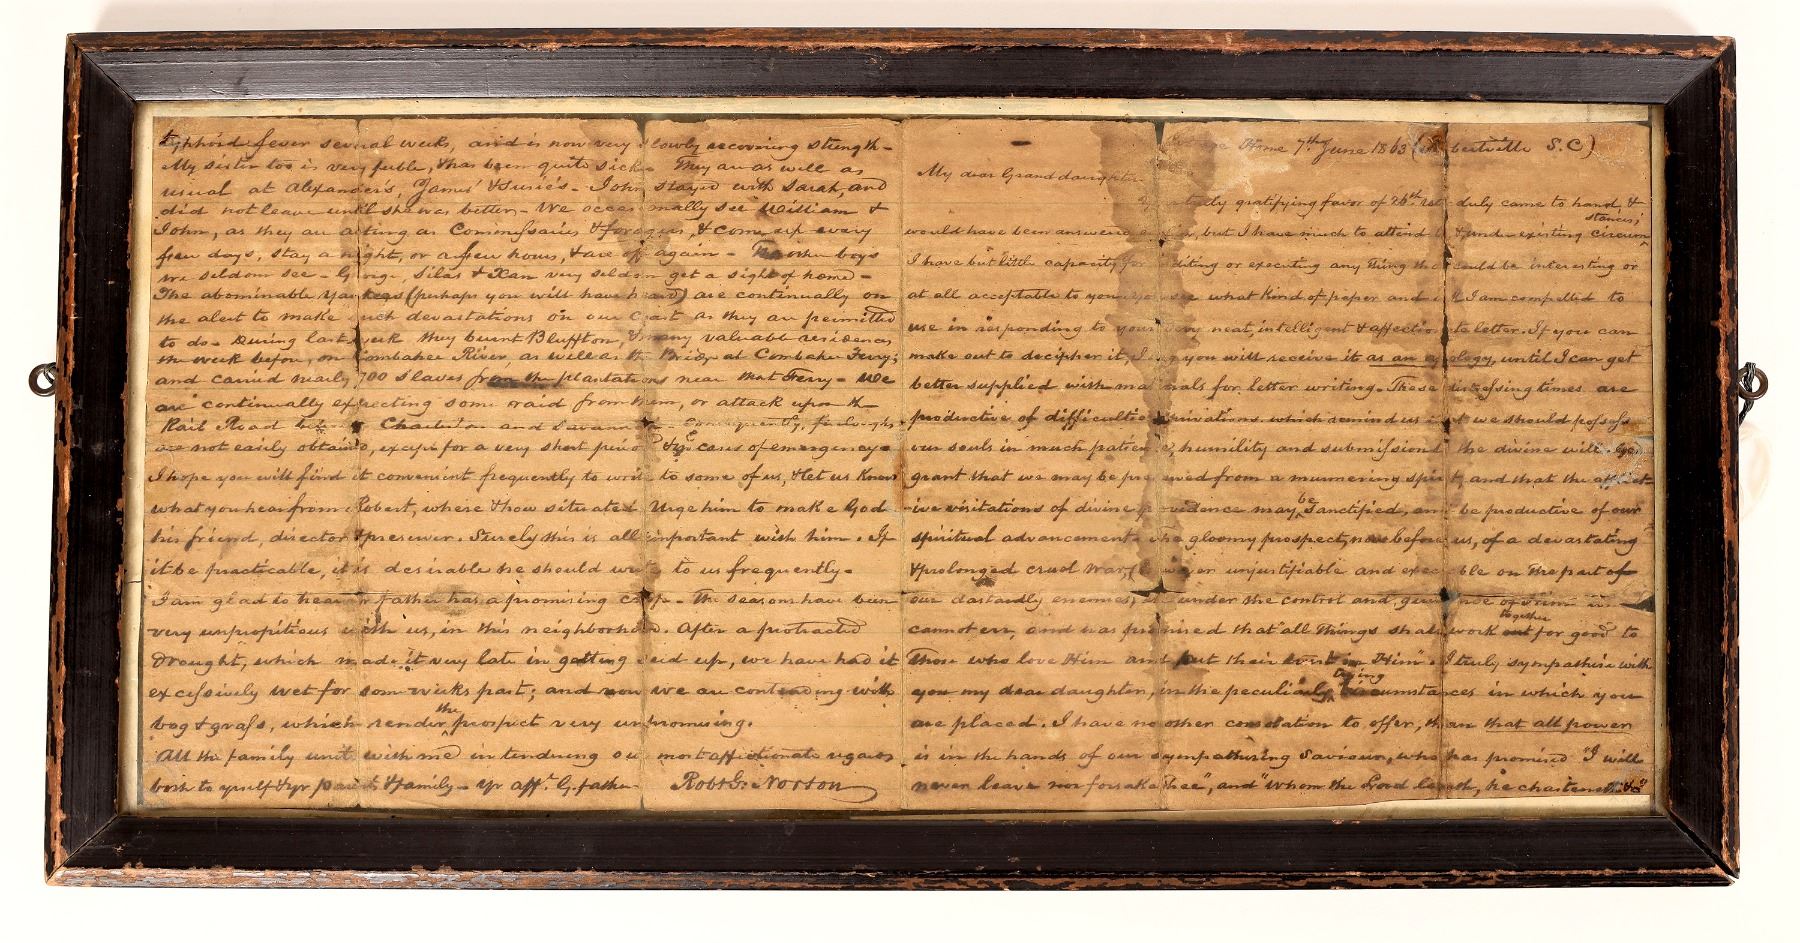 Home 7th June 1863 (Robertville S.C)
My dear Grand daughter
gratifying favor of 26th duly came to hand, &
would have been answered but I have much to attend & under existing circumstances;
I have but little capacity for diting or executing any thing that could be interesting or
at all acceptable to you. You see what kind of paper and ink I am compelled to
use in responding to your very neat, intelligent & affectionate letter. If you can
make out to decipher it, I beg you will receive it as an apology, until I can get
better supplied with materials for letter writing. These distressing times are
productive of difficulties privations which remind us that we should possess
our souls in much patience, humility and submission to the divine will. God
grant that we may be preserved from a murmuring spirit, and that the afflict-
ive visitations of divine providence may be sanctified, and be productive of our
spiritual advancement. The gloomy prospect, now before us, of a devastating
& prolonged cruel war, (however unjustifiable and execrable on the part of
our dastardly enemies) is under the control and guidance of Him who
cannot err, and has promised that "all things shall work together for good to
those who love Him and put their trust in Him". I truly sympathise with
you my dear daughter, in the peculiarly trying circumstances in which you
are placed. I have no other consolation to offer, than that all power
is in the hands of our sympathising Saviour, who has promised "I will
never leave nor forsake thee", and "whom the Lord loveth, he chasteneth &c"
typhoid fever several weeks, and is now very slowly recovering strength-
My sister too is very feeble, & has been quite sick. They are as well as
usual at Alexander's, James' & Susie's- John stayed with Sarah, and
did not leave until she was better- We occasionally see William &
John, as they are acting as Commissaries & foragers, & come up every
few days, stay a night, or a few hours, & are off again- The other boys
we seldom see- George, Silas & Xan very seldom get a sight of home-
The abominable Yankees (perhaps you will have heard) are continually on
the alert to make such devastations on our coast as they are permitted
to do- During last week they burnt Bluffton, & many valuable residences
the week before, on Combahee River, as well as the Bridge at Combahee Ferry;
and carried nearly 700 slaves from the plantations near that Ferry- We
are continually expecting some raid from them, or attack upon the
Rail Road Charleston and Savannah Consequently, furloughs
are not easily obtained, except for a very short period & cases of emergency-
I hope you will find it convenient frequently to write to some of us, & let us know
what you hear from Robert, where & how situated Urge him to make God
his friend, director & preserver. Surely this is all important with him. If
it be practicable, it is desirable he should write to us frequently-
I am glad to hear yr father has a promising crop- The seasons have been
very unpropitious with us, in this neighborhood. After a protracted
drought, which made it very late in getting seed up, we have had it
excessively wet for some weeks past; and now we are contending with
bog & grass, which render the prospect very unpromising.
All the family unite with me in tendering our most affectionate regards
both to yrself & yr parents & family- Yr afft. G. father Robt G. Norton